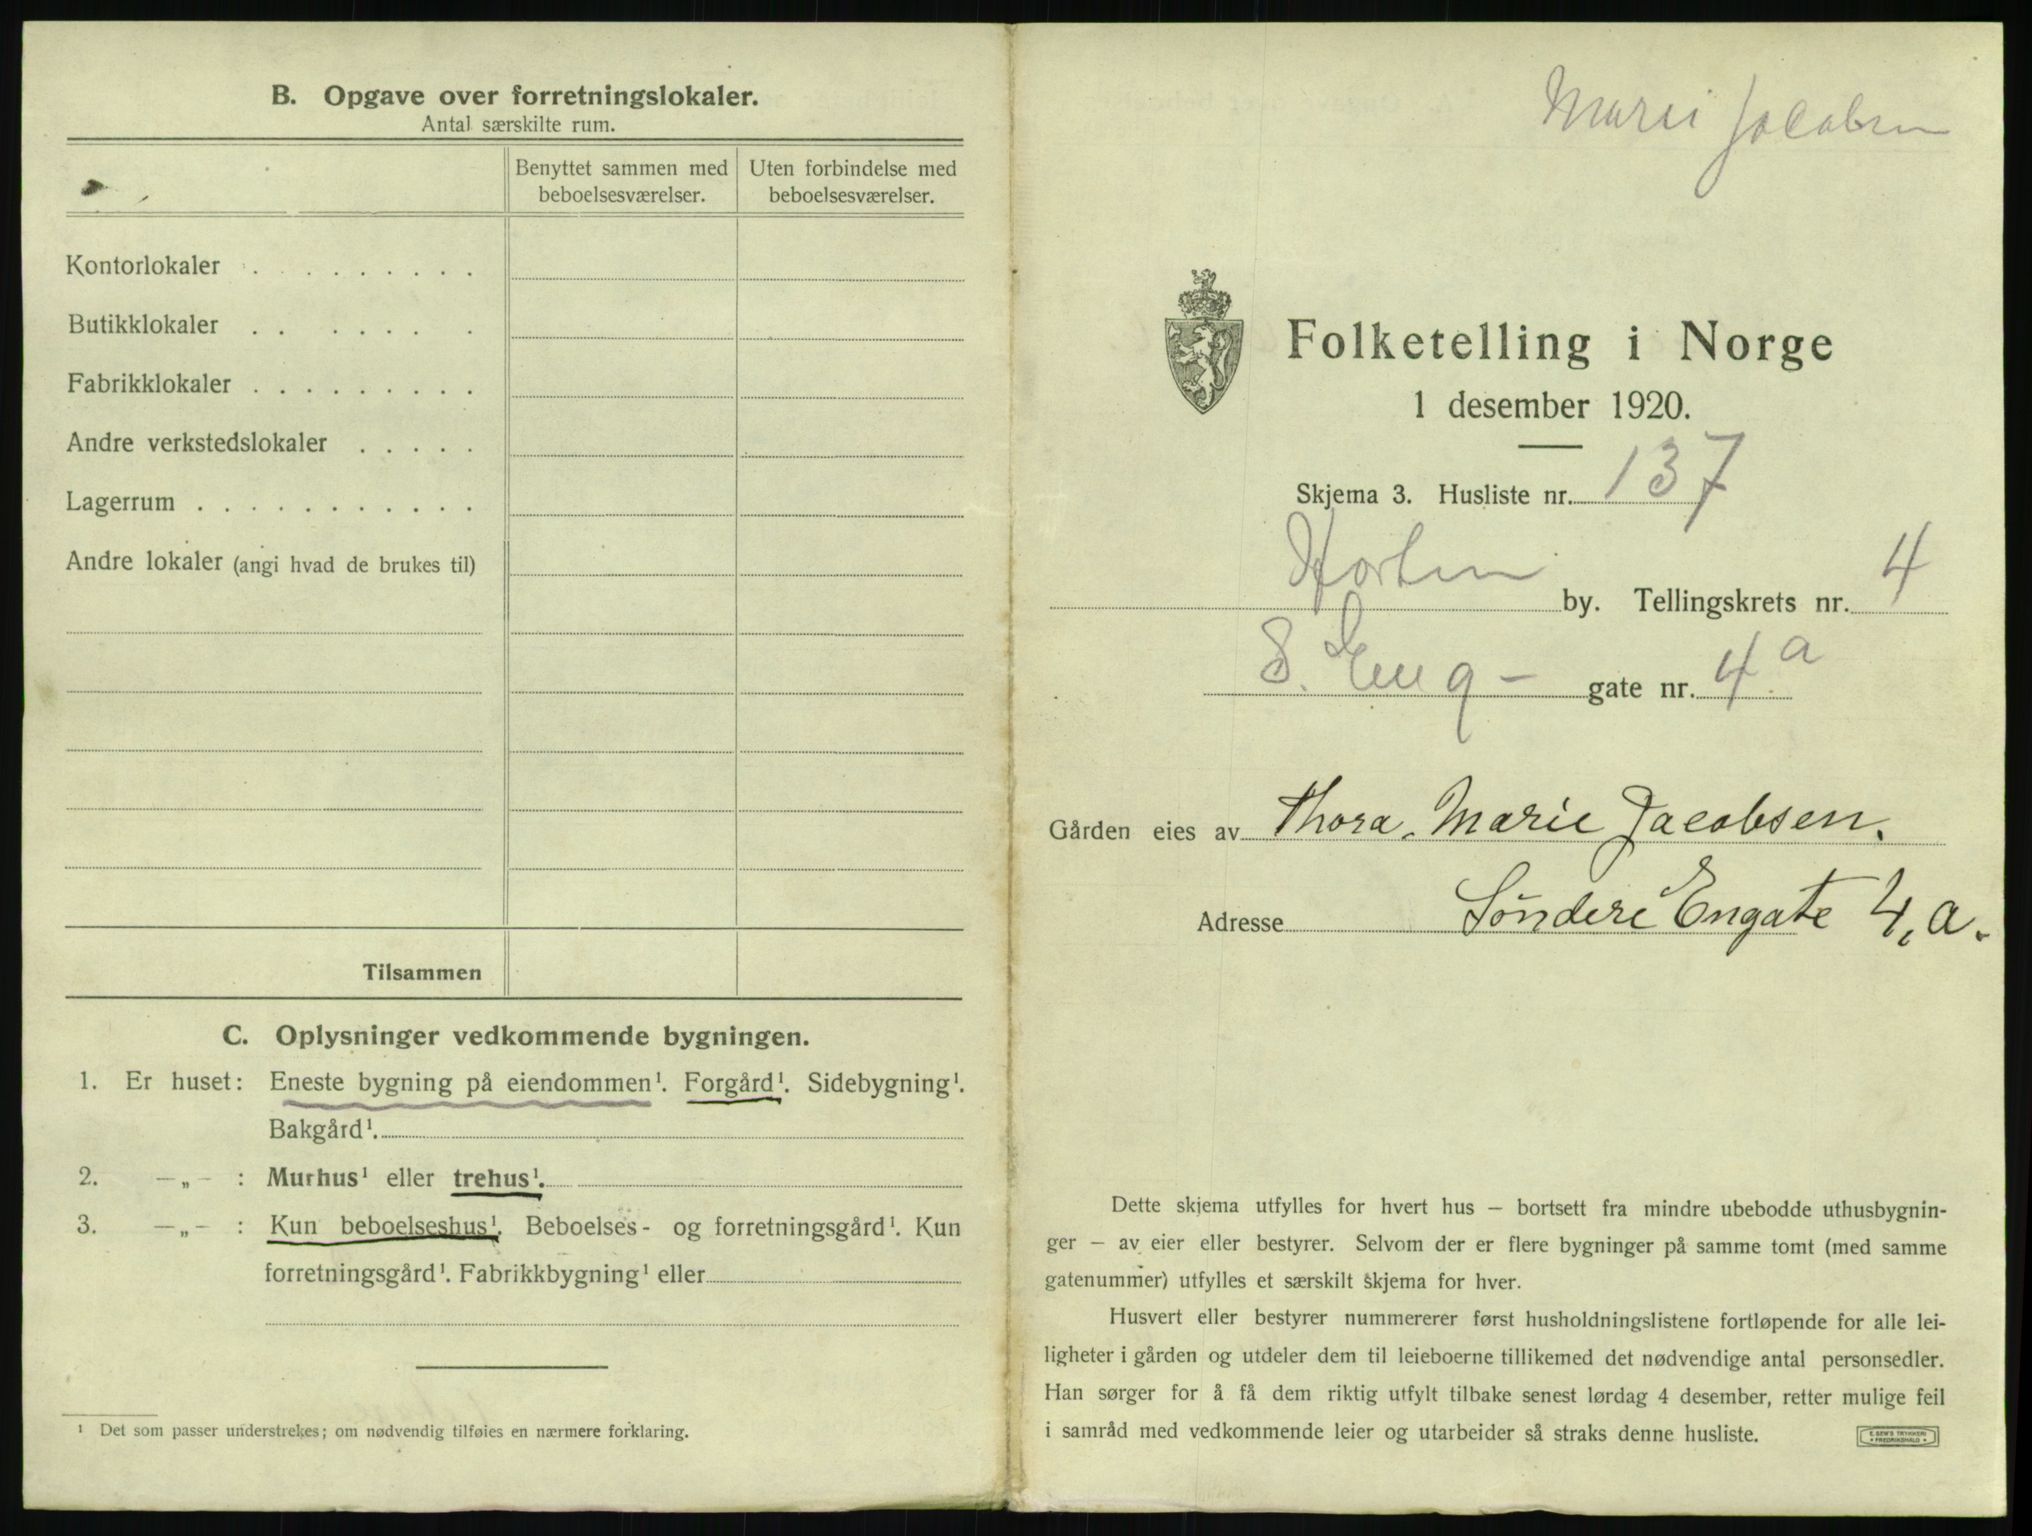 B. Opgave over forretningslokaler.
Antal særskilte rum.
Benyttet sammen med beboelsesværelser.
Uten forbindelse med beboelsesværelser.
Kontorlokaler . . . . . . . . .
Butikklokaler . . . . . . .
Fabrikklokaler . . . . . . . . .
Andre verkstedslokaler . . . . .
Lagerrum . . . . . . . . . . .
Andre lokaler (angi hvad de brukes til)
Tilsammen
C. Oplysninger vedkommende bygningen.
1. Er huset: Eneste bygning på eiendommen¹. Forgård¹. Sidebygning¹.
Bakgård¹.
2. —„— : Murhus¹ eller trehus¹.
3. —„— : Kun beboelseshus¹. Beboelses- og forretningsgård¹. Kun
forretningsgård¹. Fabrikkbygning¹ eller
¹ Det som passer understrekes; om nødvendig tilføies en nærmere forklaring.
Marei Jacobsen
Folketelling i Norge
1 desember 1920.
Skjema 3. Husliste nr. 137
Horten by. Tellingskrets nr. 4
S. Eng - gate nr. 4a
Gården eies av Thora Marie Jacobsen.
Adresse Söndere Engate 4, a.
Dette skjema utfylles for hvert hus — bortsett fra mindre ubebodde uthusbygnin-
ger — av eier eller bestyrer. Selvom der er flere bygninger på samme tomt (med samme
gatenummer) utfylles et særskilt skjema for hver.
Husvert eller bestyrer nummererer først husholdningslistene fortløpende for alle lei-
ligheter i gården og utdeler dem til leieboerne tillikemed det nødvendige antal personsedler.
Han sørger for å få dem riktig utfylt tilbake senest lørdag 4 desember, retter mulige feil
i samråd med vedkommende leier og utarbeider så straks denne husliste.
E. SEM'S TRYKKERI
• FREDRIKSHALD •